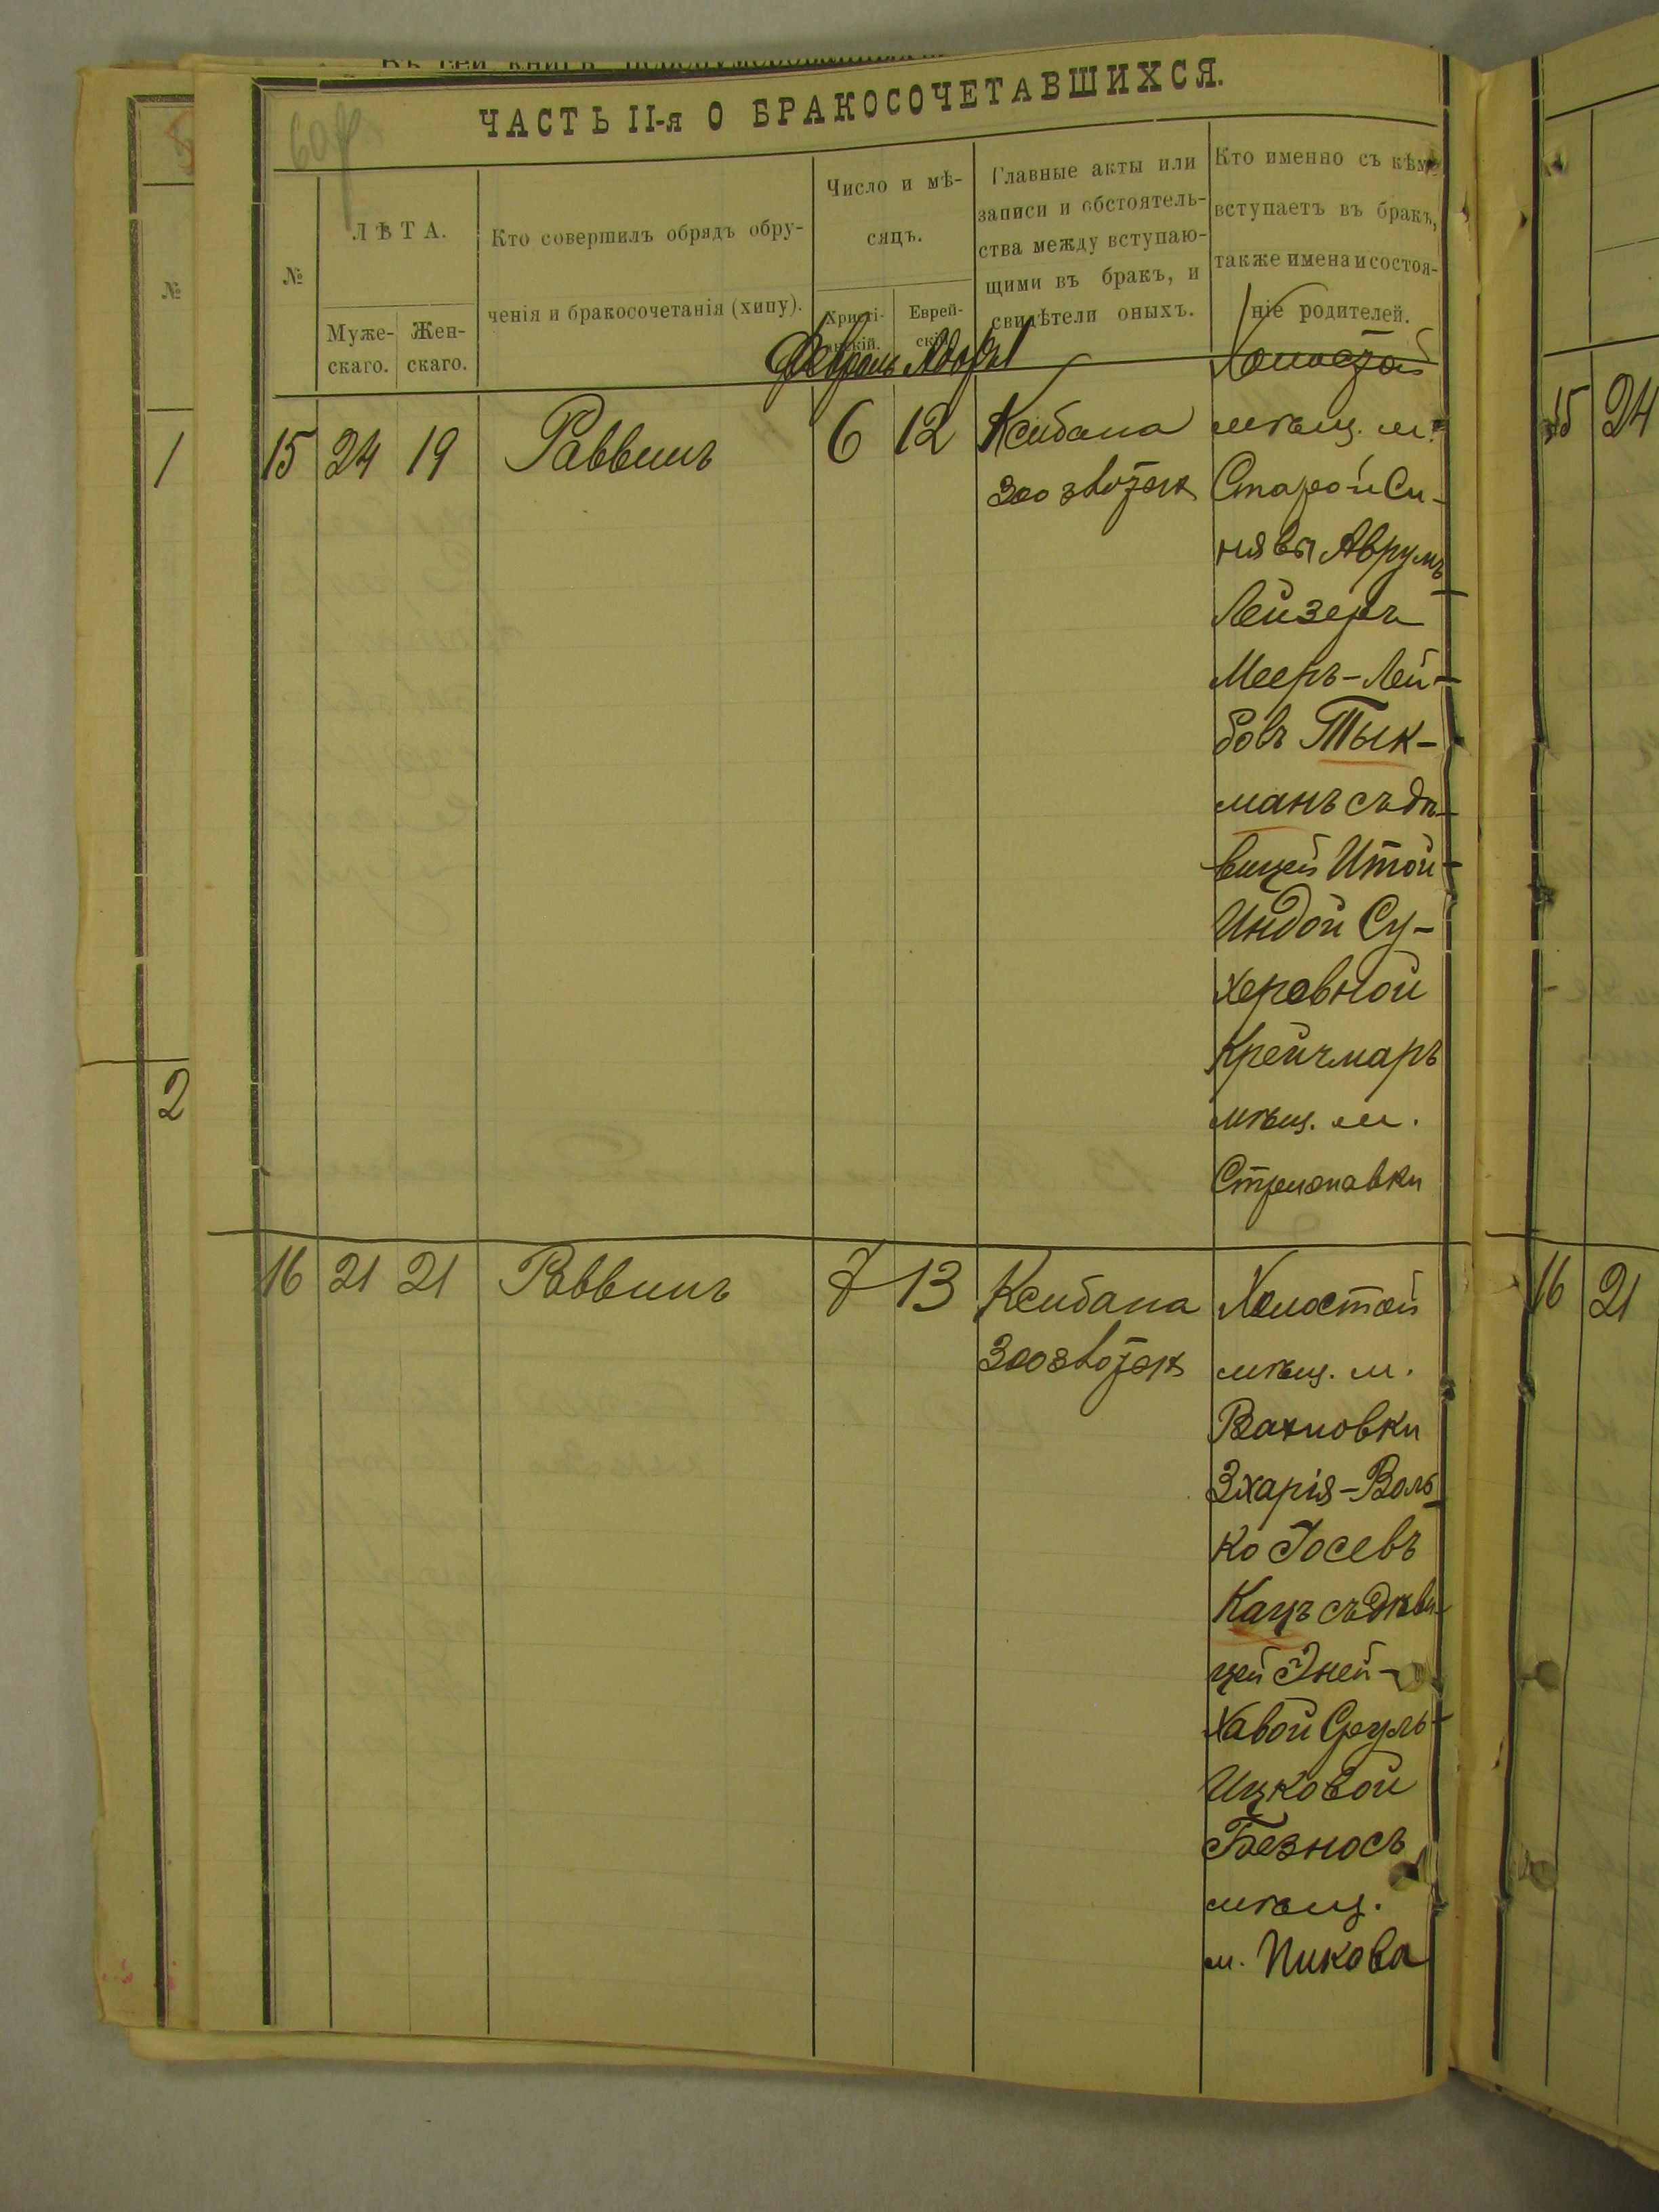 ЧАСТЬ II-я О БРАКОСОЧЕТАВШИХСЯ.
№
ЛѢТА.
Муже-
скаго.
Жен-
скаго.
Кто совершилъ обрядъ обру-
ченія и бракосочетанія (хипу).
Число и мѣ-
сяцъ.
Христі-
анскій.
Еврей-
скій.
Главные акты или
записи и обстоятель-
ства между вступаю-
щими въ бракъ, и
свидѣтели оныхъ.
Кто именно съ кѣмъ
вступаетъ въ бракъ,
также имена и состоя-
ніе родителей.
Февраль Адаръ
Холостой
15 24 19 Раввинъ 6 12 Ксибана
300
мѣщ. м.
Старой Си-
нявы Аврумъ
Лейзеръ
Мееръ-Лей-
бовъ Тык-
манъ съ дѣ-
вицей Итой-
Индой Су-
херовной
Крейчмаръ
мѣщ. м.
Стрижавки
16 21 21 Раввинъ 7 13 Ксибана
300
Холостой
мѣщ. м.
Вахновки
Зхарія-Воль
ко Іосевъ
Кацъ съ дѣви
цей Эней-
Хавой Сруль-
Ицковой
Безносъ
мѣщ.
м. Пикова
№
1
2
15 24
16 21